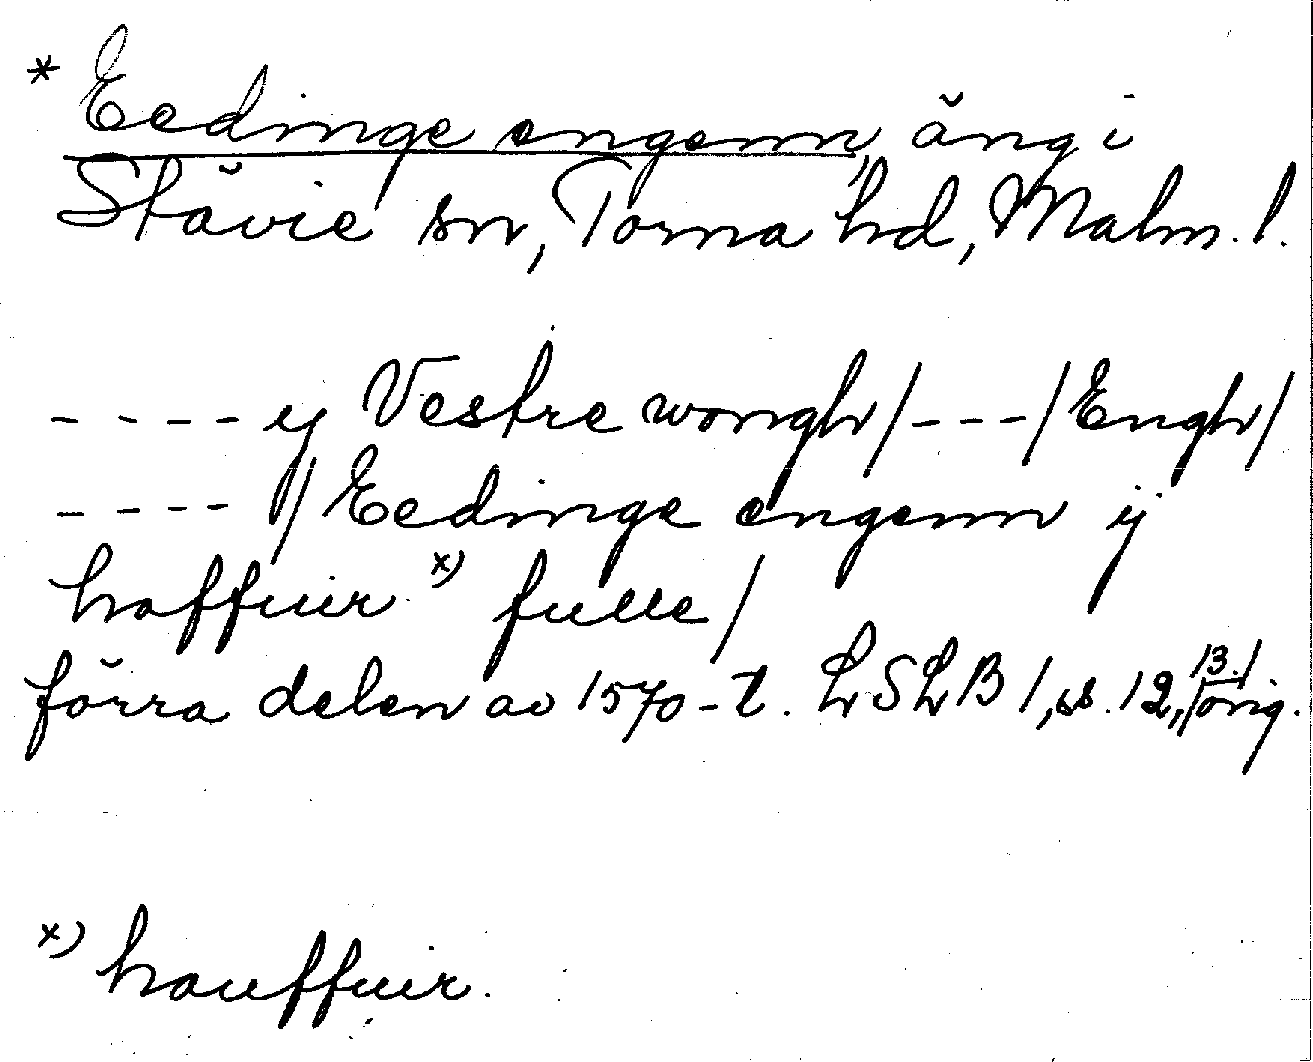 * Eedinge engenn, äng i
Stävie sn, Torna hd, Malm. l.
- - - - ej Vestre wongh/---/Engh/
- - - - / Eedinge engenn ij
haffuir x) fulle/
förra delen av 1570-t. LSLB 1, s. 12, /orig.
/3./
x) hauffuir.